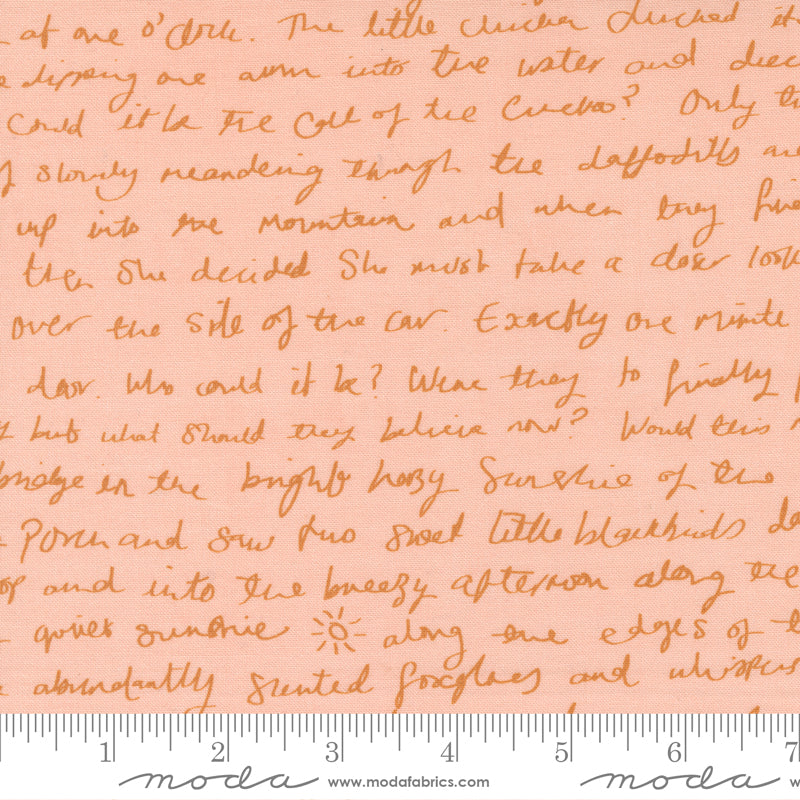 at one o'clock. The little chicken clucked it
dipping one arm into the water and
could it be the call of the cuckoo? Only
slowly meandering through the daffodills are
up into the mountain and when they
then she decided She must take a closer look
over the side of the car. Exactly one minute
door. Who could it be? Were they to finally
but what should they believe now? Would this
bridge in the bright hazy Sunshine of the
Porch and saw two sweet little blackbirds
and into the breezy afternoon along the
quiet sunshine along the edges of
abundantly scented foxgloves and whispers
1 2 3 4 5 6 7
moda www.modafabrics.com moda